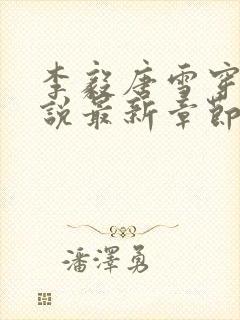 李毅唐雪穿
說最新章節
潘澤勇